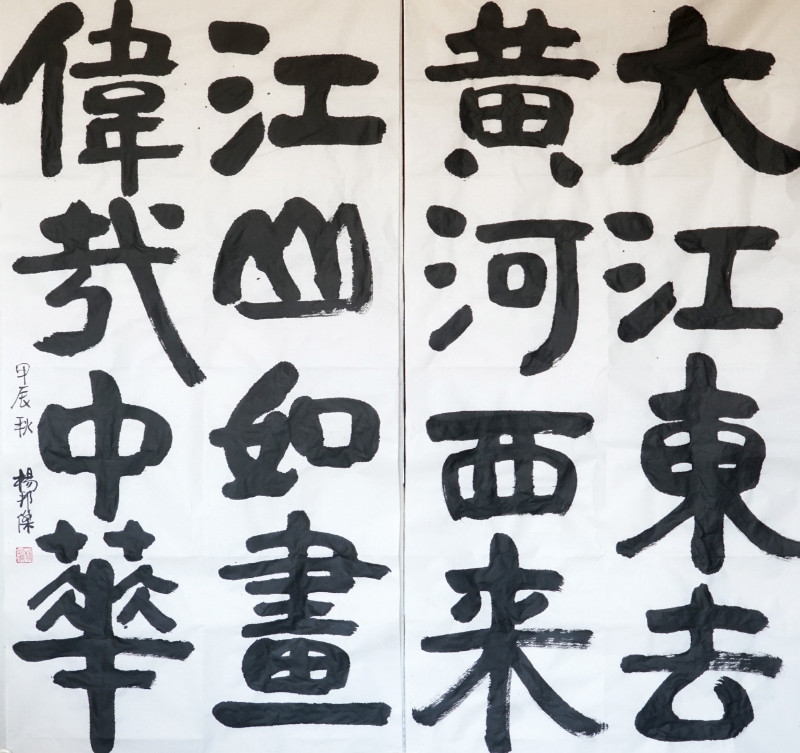 大江東去
黄河西来
江山如畫
偉哉中華
甲辰秋 楊邦傑